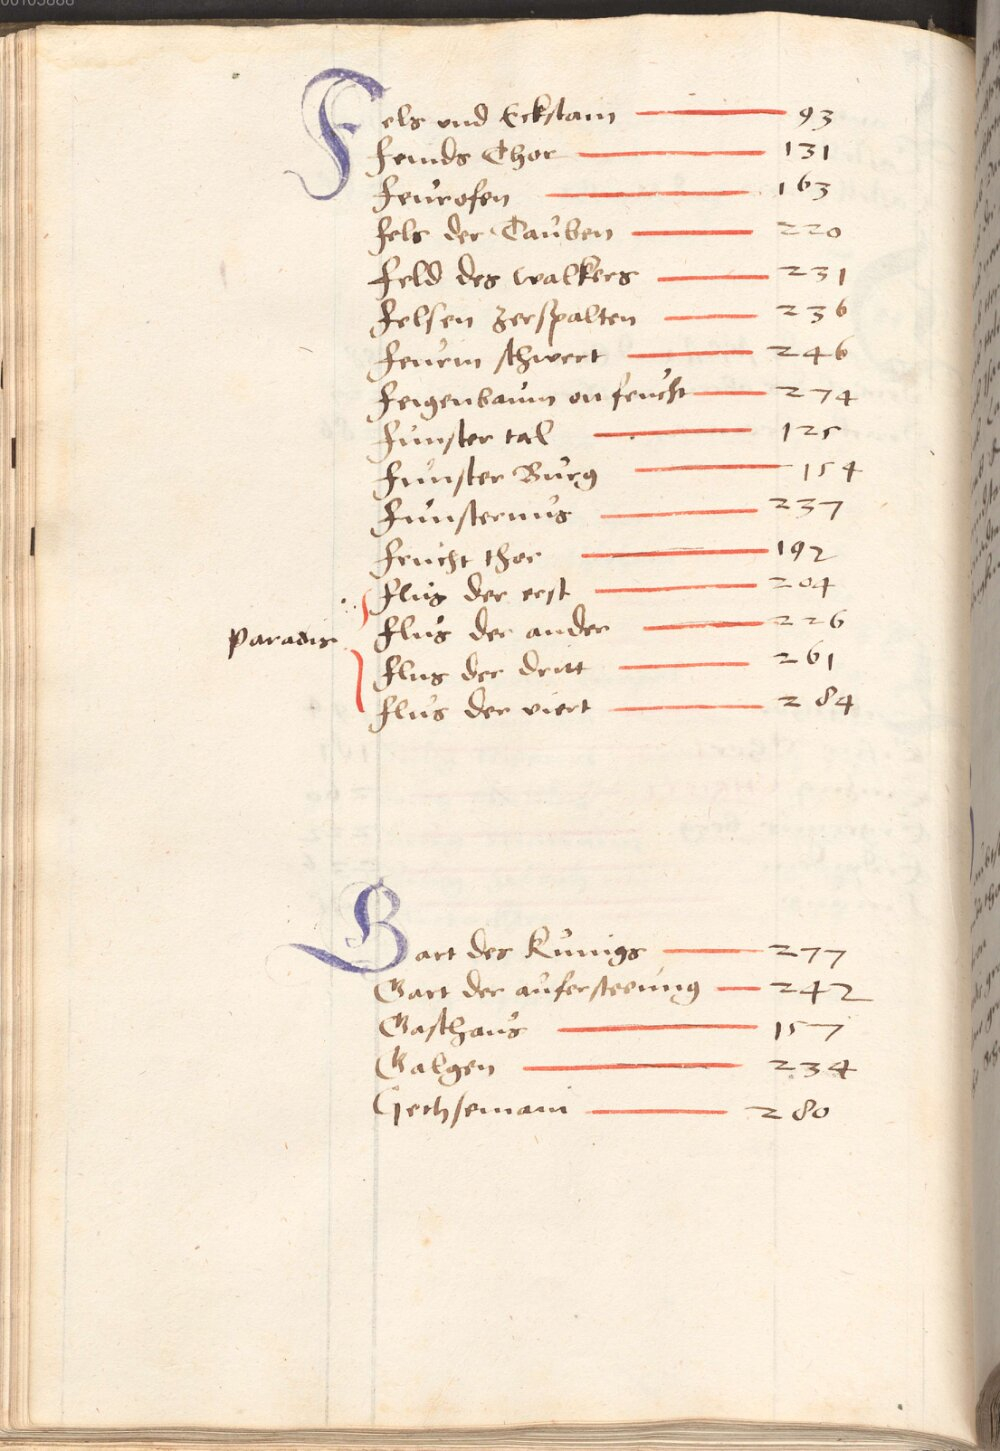 Fels vnd Eckstain 93
Feinds Chor 131
Feürofen 163
Fels der Tauben 220
Feld des walkers 231
Felsen zerspalten 236
Feürin schwert 246
Feigenbaum on frucht 274
Finster tal 125
Finster Bürg 154
Finsternüs 237
Frucht thor 192
Flüs der erst 204
Paradis
Flüs der ander 226
Flus der dritt 261
Flüs der viert 284
Gart des Künigs 277
Gart der aufersteeung 242
Gasthaüs 157
Galgen 234
Gethsemani 280